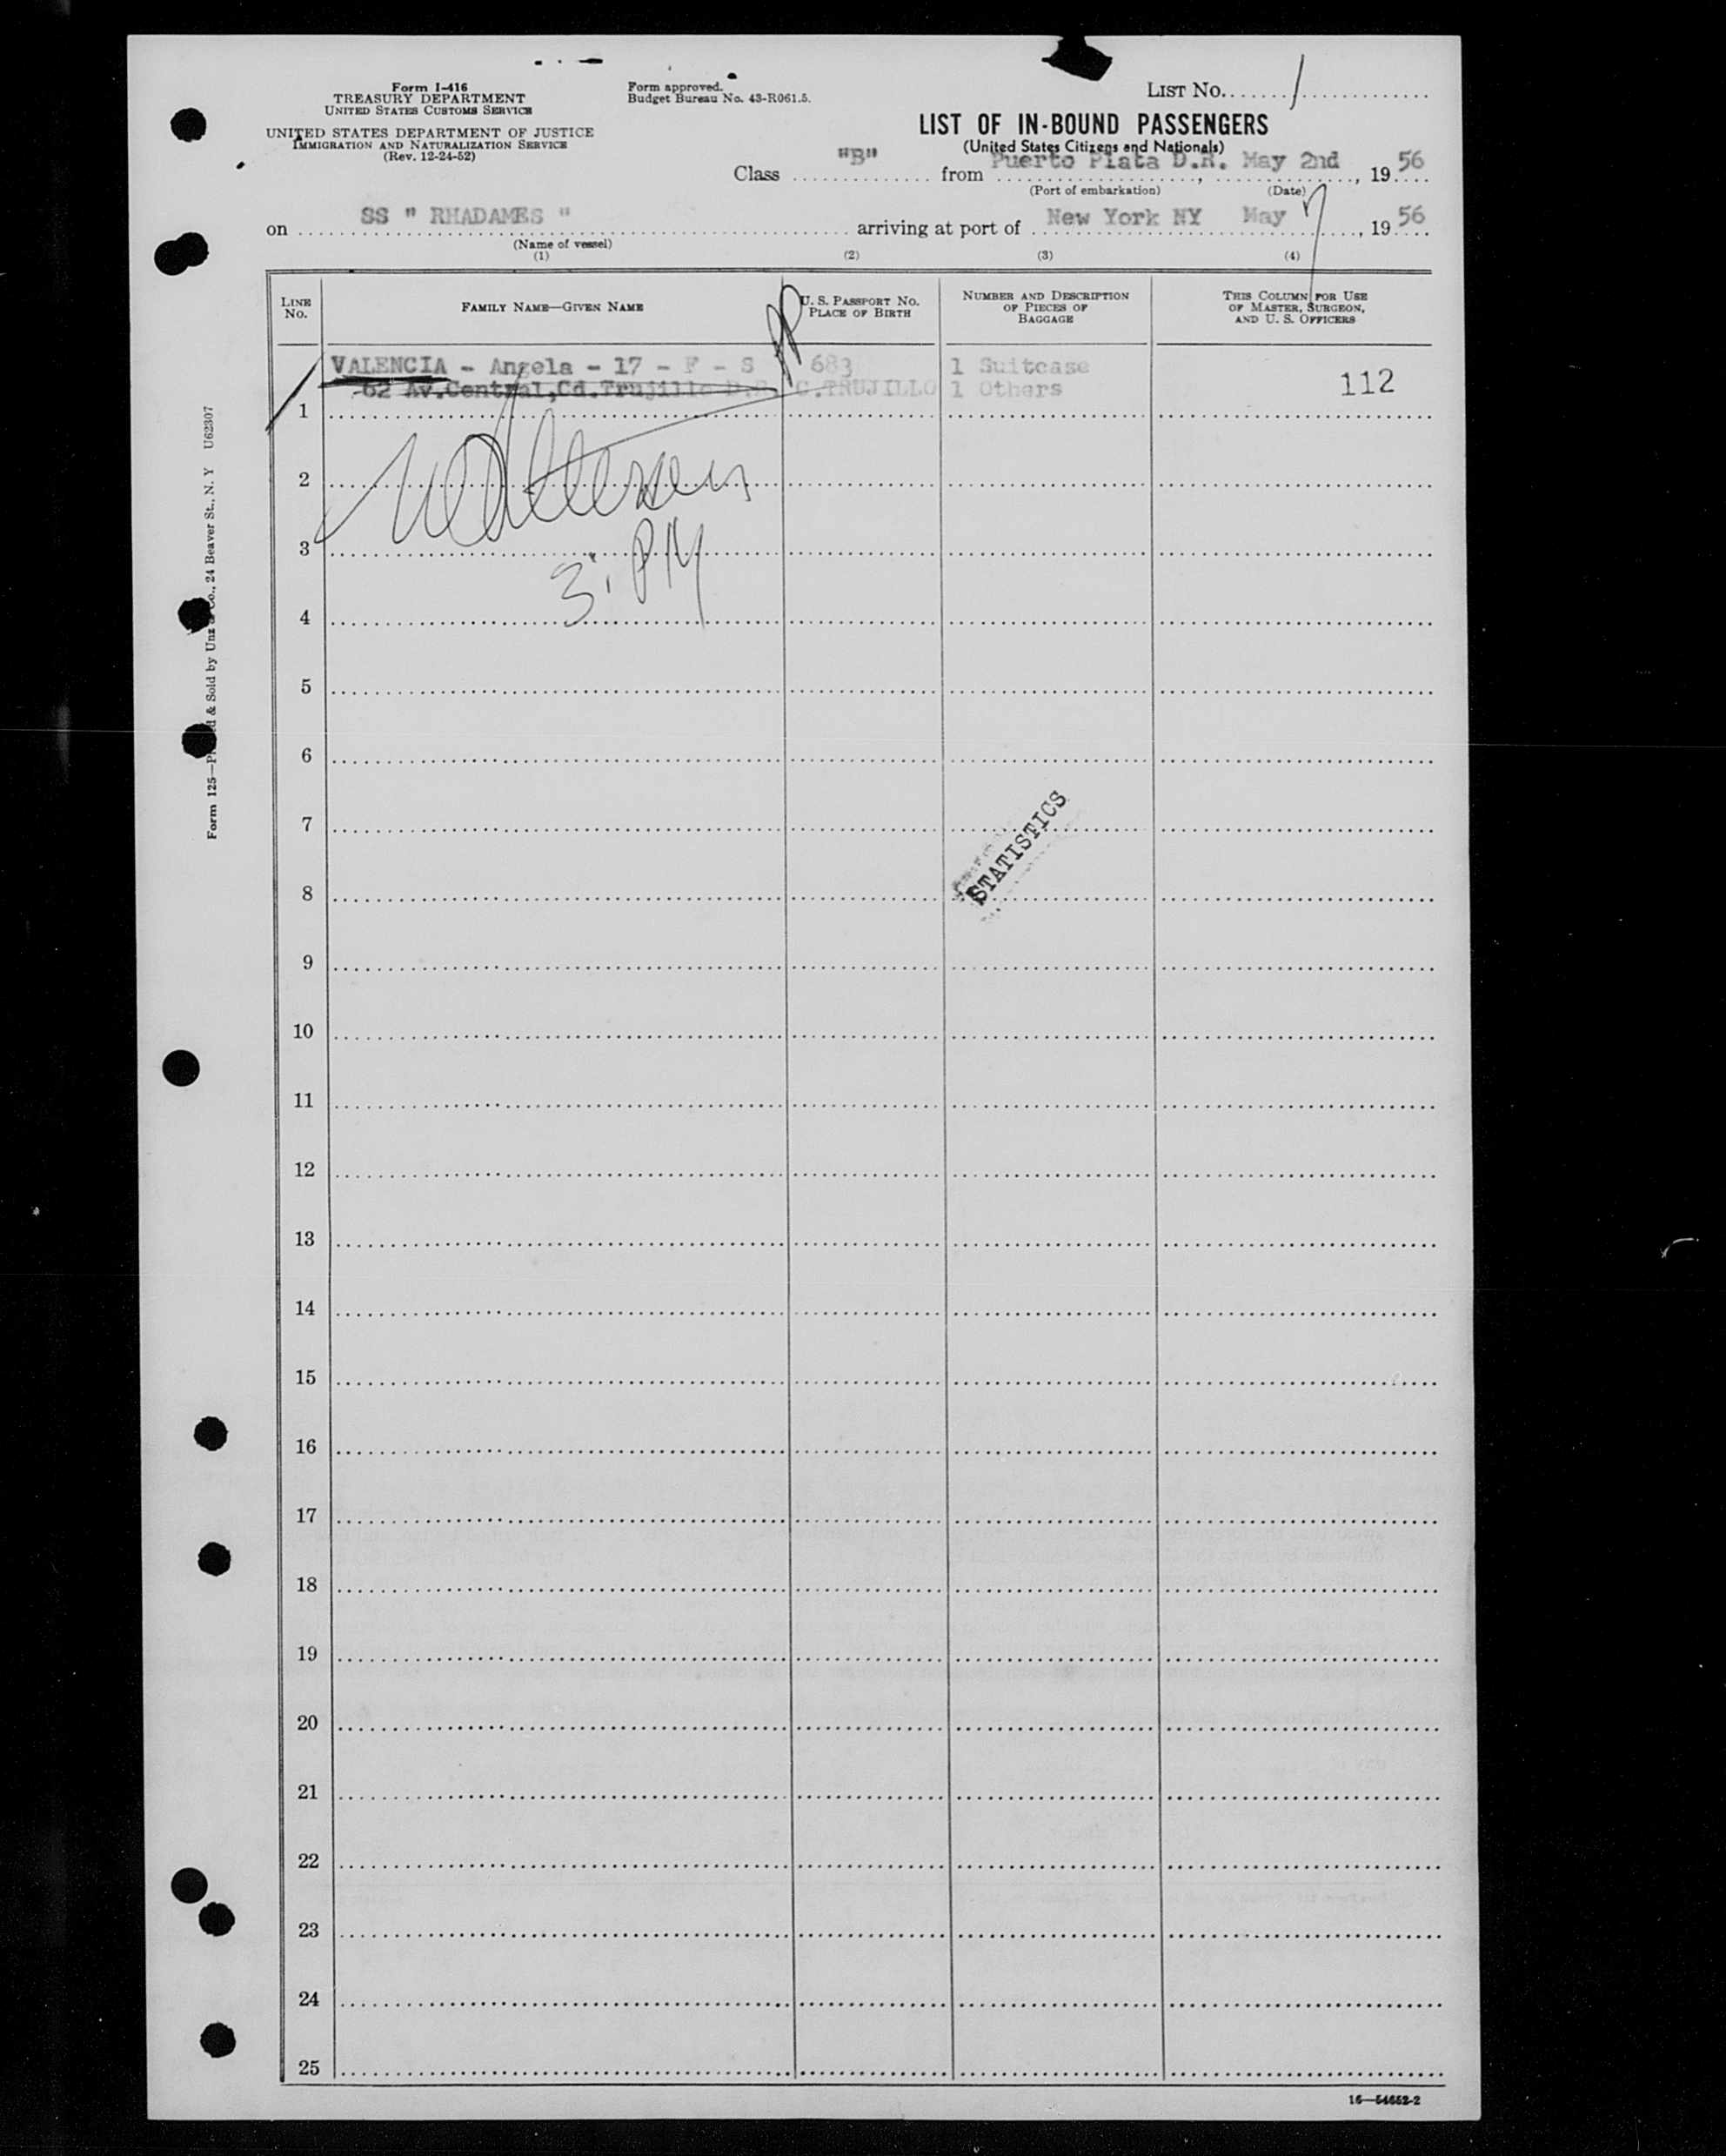 Form I-416
TREASURY DEPARTMENT
UNITED STATES CUSTOMS SERVICE
UNITED STATES DEPARTMENT OF JUSTICE
IMMIGRATION AND NATURALIZATION SERVICE
(Rev. 12-24-52)
Form approved.
Budget Bureau No. 43-R061.5.
LIST No. 1
LIST OF IN-BOUND PASSENGERS
(United States Citizens and Nationals)
Class "B" from Puerto Plata D.R. May 2nd, 1956
(Port of embarkation) (Date)
on SS " RHADAMES " arriving at port of New York NY May 7, 1956
(Name of vessel)
(1) (2) (3) (4)
LINE No.
FAMILY NAME—GIVEN NAME
U. S. PASSPORT No.
PLACE OF BIRTH
NUMBER AND DESCRIPTION
OF PIECES OF
BAGGAGE
THIS COLUMN FOR USE
OF MASTER, SURGEON,
AND U. S. OFFICERS
VALENCIA - Angela - 17 - F - S 683 1 Suitcase
62 Av.Central,Cd.Trujillo D.R. C.TRUJILLO 1 Others 112
1
2
3
3: PM
4
5
6
7
STATISTICS
8
9
10
11
12
13
14
15
16
17
18
19
20
21
22
23
24
25
16—54652-2
Form 125—Printed & Sold by Unz & Co., 24 Beaver St., N. Y U62307